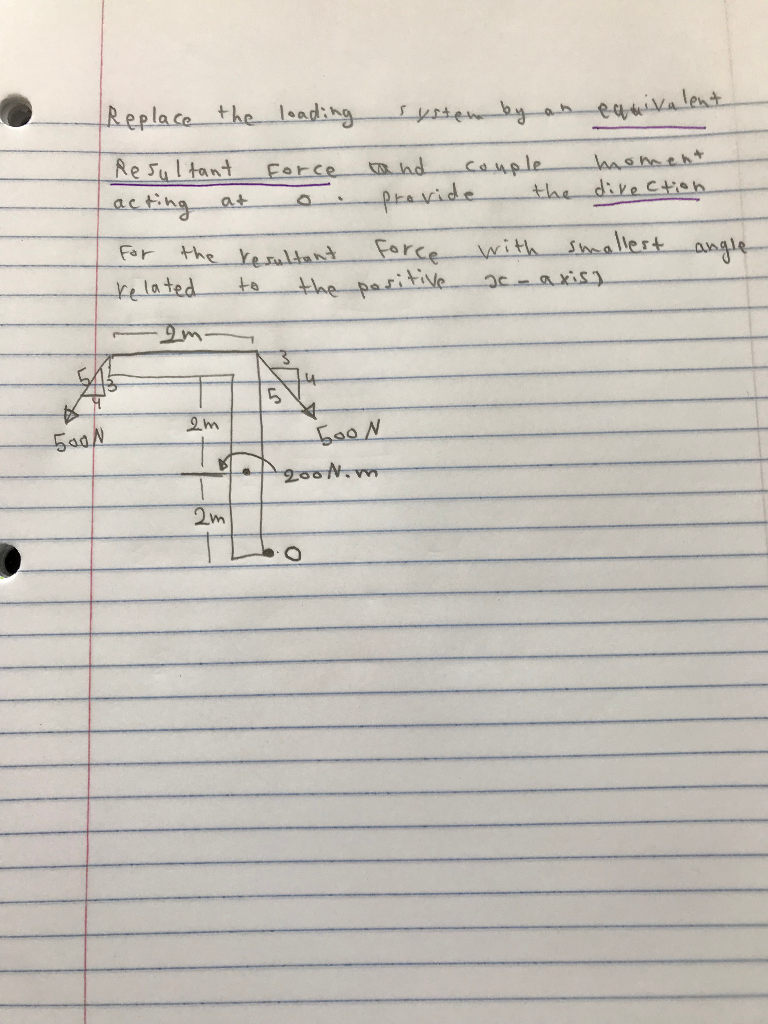 Replace the loading system by an equivalent
Resultant Force and couple moment
acting at O. provide the direction
For the resultant Force with smallest angle
related to the positive x-axis)
2m
5 3
4
500N
3
4
5
500N
2m
200N.m
2m
O